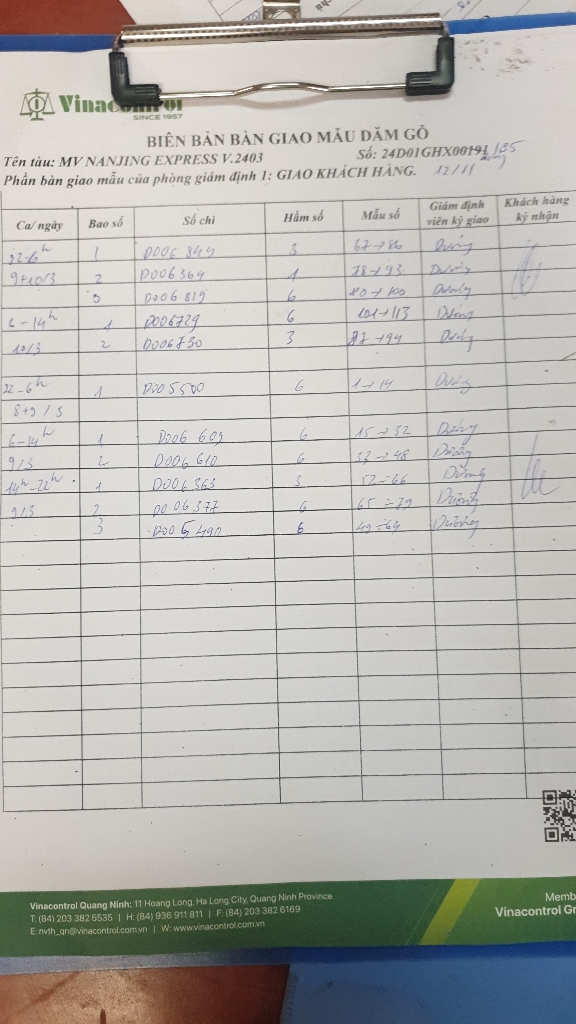 Vinacontrol
SINCE 1957
BIÊN BẢN BÀN GIAO MẪU DĂM GỖ
Tên tàu: MV NANJING EXPRESS V.2403 Số: 24D01GHX00191
Phần bàn giao mẫu của phòng giám định 1: GIAO KHÁCH HÀNG. 12/11
Ca/ ngày Bao số Số chì Hầm số Mẫu số Giám định viên ký giao Khách hàng ký nhận
22-6h 1 D006849 3 67→86 Dương
9+10/3 2 D006364 1 78→93 Dương
3 D006819 6 80→100 Dương
6-14h 1 D006729 6 101→113 Dương
10/3 2 D006730 3 87→94 Dương
22-6h 1 D005500 6 1→14 Dương
8+9/3
6-14h 1 D006609 6 15→32 Dương
9/3 2 D006610 6 33→48 Dương
14h-22h 1 D006363 3 52÷66 Dương
9/3 2 D006377 6 65÷79 Dương
3 D005490 6 49÷64 Dương
Vinacontrol Quang Ninh: 11 Hoang Long, Ha Long City, Quang Ninh Province
T: (84) 203 382 5535 | H: (84) 936 911 811 | F: (84) 203 382 6169
E: nvth_qn@vinacontrol.com.vn | W: www.vinacontrol.com.vn
Memb
Vinacontrol Gr